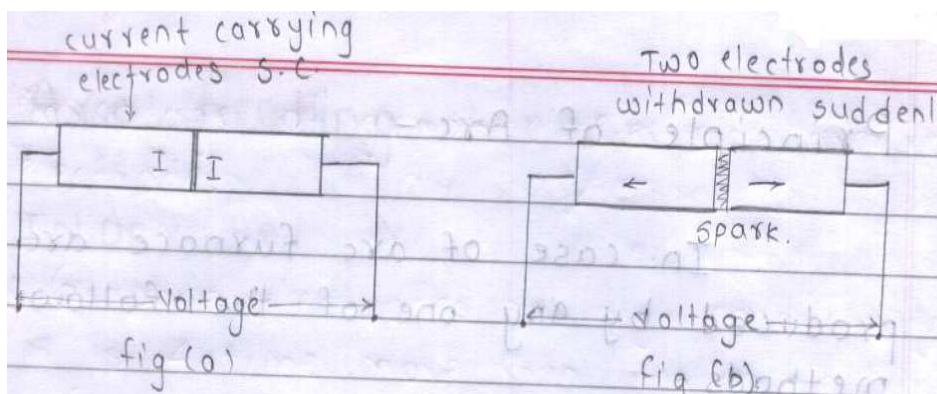 current carrying
electrodes S.C.
I I
voltage
fig (a)
Two electrodes
withdrawn suddenl
spark.
voltage
fig (b).